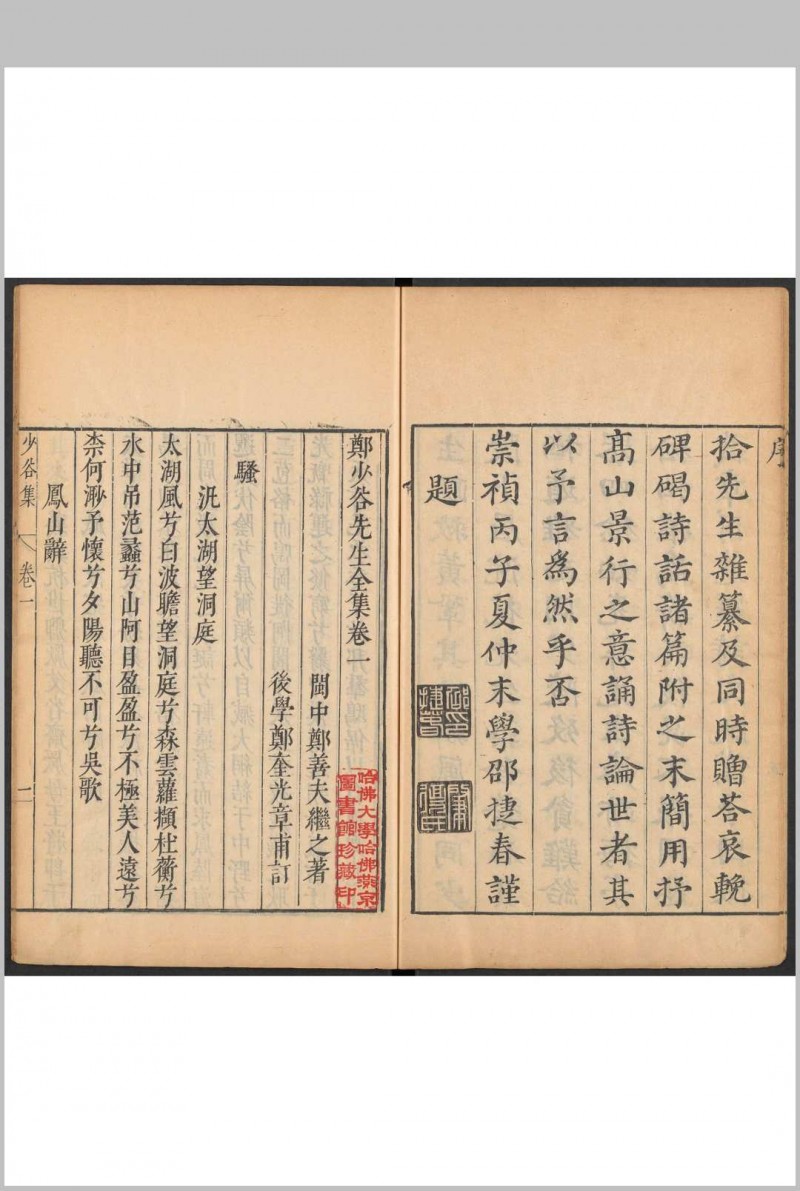 序
拾先生雜纂及同時贈荅哀輓
碑碣詩話諸篇附之末簡用抒
高山景行之意誦詩論世者其
以予言爲然乎否
崇禎丙子夏仲末學邵捷春謹
題
鄭少谷先生全集卷一
閩中鄭善夫繼之著
後學鄭奎光章甫訂
騷
汎太湖望洞庭
太湖風兮白波瞻望洞庭兮森雲蘿擷杜蘅兮
水中吊范蠡兮山阿目盈盈兮不極美人遠兮
柰何渺予懷兮夕陽聽不可兮吳歌
鳳山辭
少谷集
卷一
哈佛大學哈佛燕京
圖書館珍藏印